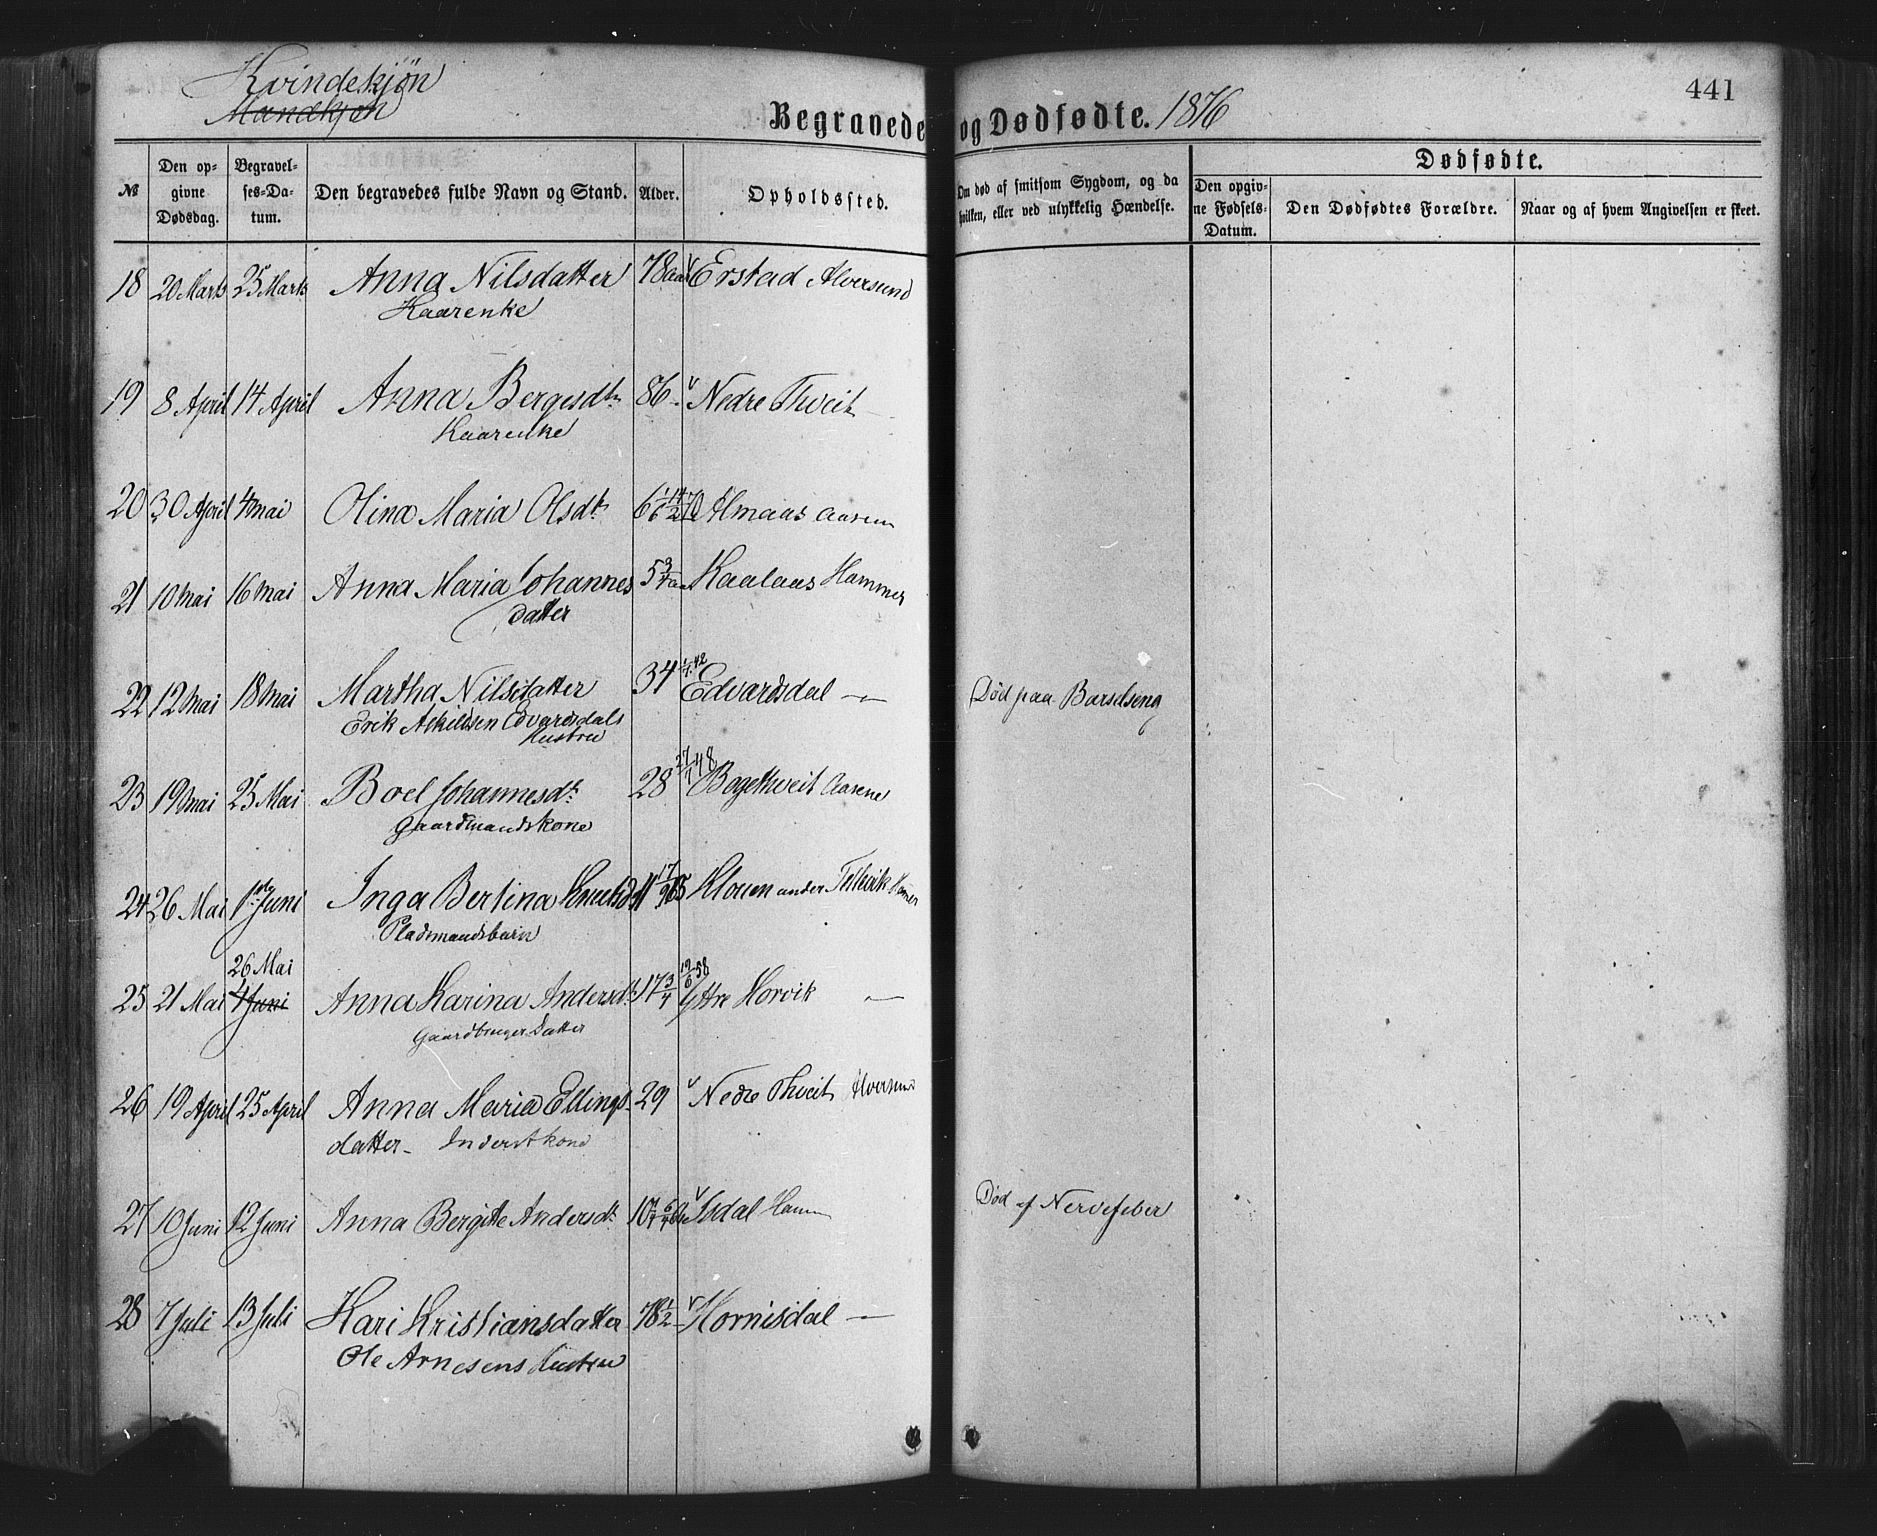 Kvindekjøn
Mandkjøn
Begravede og Dødfødte. 1876
441
№
Den opgivne Dødsdag.
Begravelses-Datum.
Den begravedes fulde Navn og Stand.
Alder.
Opholdssted.
Om død af smitsom Sygdom, og da hvilken, eller ved ulykkelig Hændelse.
Dødfødte.
Den opgivne Fødsels-Datum.
Den Dødfødtes Forældre.
Naar og af hvem Angivelsen er skeet.
18 20 Marts 25 Marts Anna Nilsdatter 78 aar v Erstad Alversund
Kaarenke
19 8 April 14 April Anna Bergesdtr 86 v Nedre Tveit —
Kaarenke
20 30 April 4 mai Olina Maria Olsdtr 6 Almaas Aasene
21 10 mai 16 mai Anna Maria Johannes 5 3/4 aar Kaalaas Hammer
datter
22 12 mai 18 mai Martha Nilsdatter 34 Edvardsdal — Død paa Barselseng
Erik Askildsen Edvardsdals
Hustru
23 19 mai 25 Mai Boel Johannesdtr 28 27/7 48 Bogethveit Aasene
Gaardmandskone
24 26 Mai 1ste Juni Inga Bertina Knutsdtr 11 17/9 65 under Hammer
Pladsmandsbarn
26 Mai
25 21 Mai 1 Juni Anna Karina Andersdtr 17 3/4 19/6 58 Ytre Horvik —
Gaardbruger Datter
26 19 April 25 April Anna Maria Ellings 29 v Nedre Thveit Alversund
datter — Inderstkone
27 10 Juni 12 Juni Anna Bergitte Andersdtr 10 v Isdal Ham Død af Nervefeber
28 7 Juli 13 Juli Kari Kristiansdatter 78 1/2 v Hornisdal —
Ole Arnesens Hustru